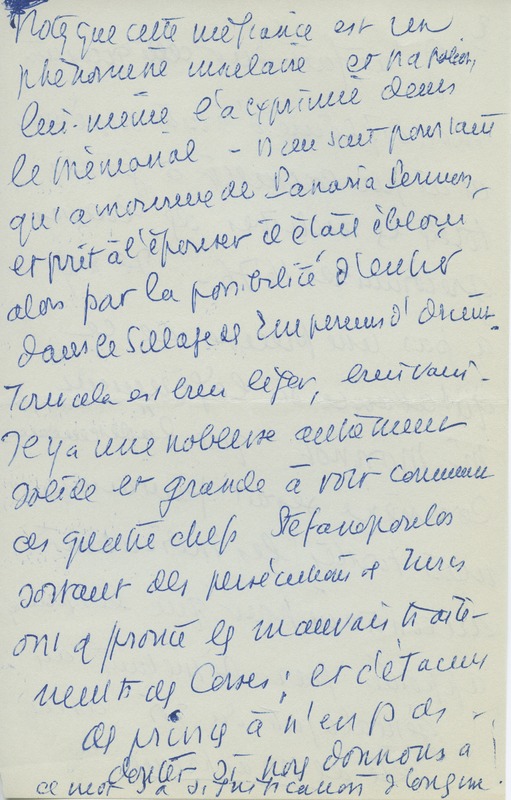 Notez que cette méfiance est un
phénomène insulaire et Napoléon,
lui-même l'a exprimé dans
le Mémorial - n'en sont pourtant
qu'amoureux de Panoria Permon,
et prêt à l'épouser il était ébloui
alors par la possibilité d'entrer
dans le sillage des Empereurs d'Orient.
Tout cela est bien léger, bien vain.
Il y a une noblesse autrement
solide et grande à voir comment
ces quatre chefs Stefanopoulos
sortant des persécutions des Turcs
ont affronté les mauvais traite-
ments des Corses ; et c'étaient
des princes à n'en pas
douter si nous donnons à
ce mot sa signification d'origine.